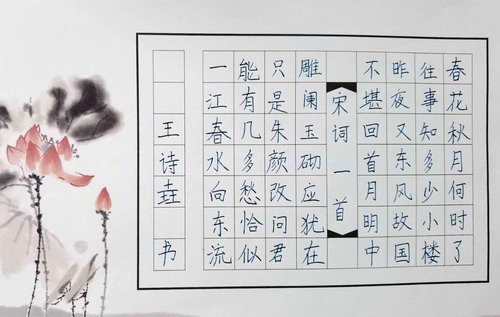 春花秋月何时了
往事知多少小楼
昨夜又东风故国
不堪回首月明中
宋词一首
雕阑玉砌应犹在
只是朱颜改问君
能有几多愁恰似
一江春水向东流
王诗书